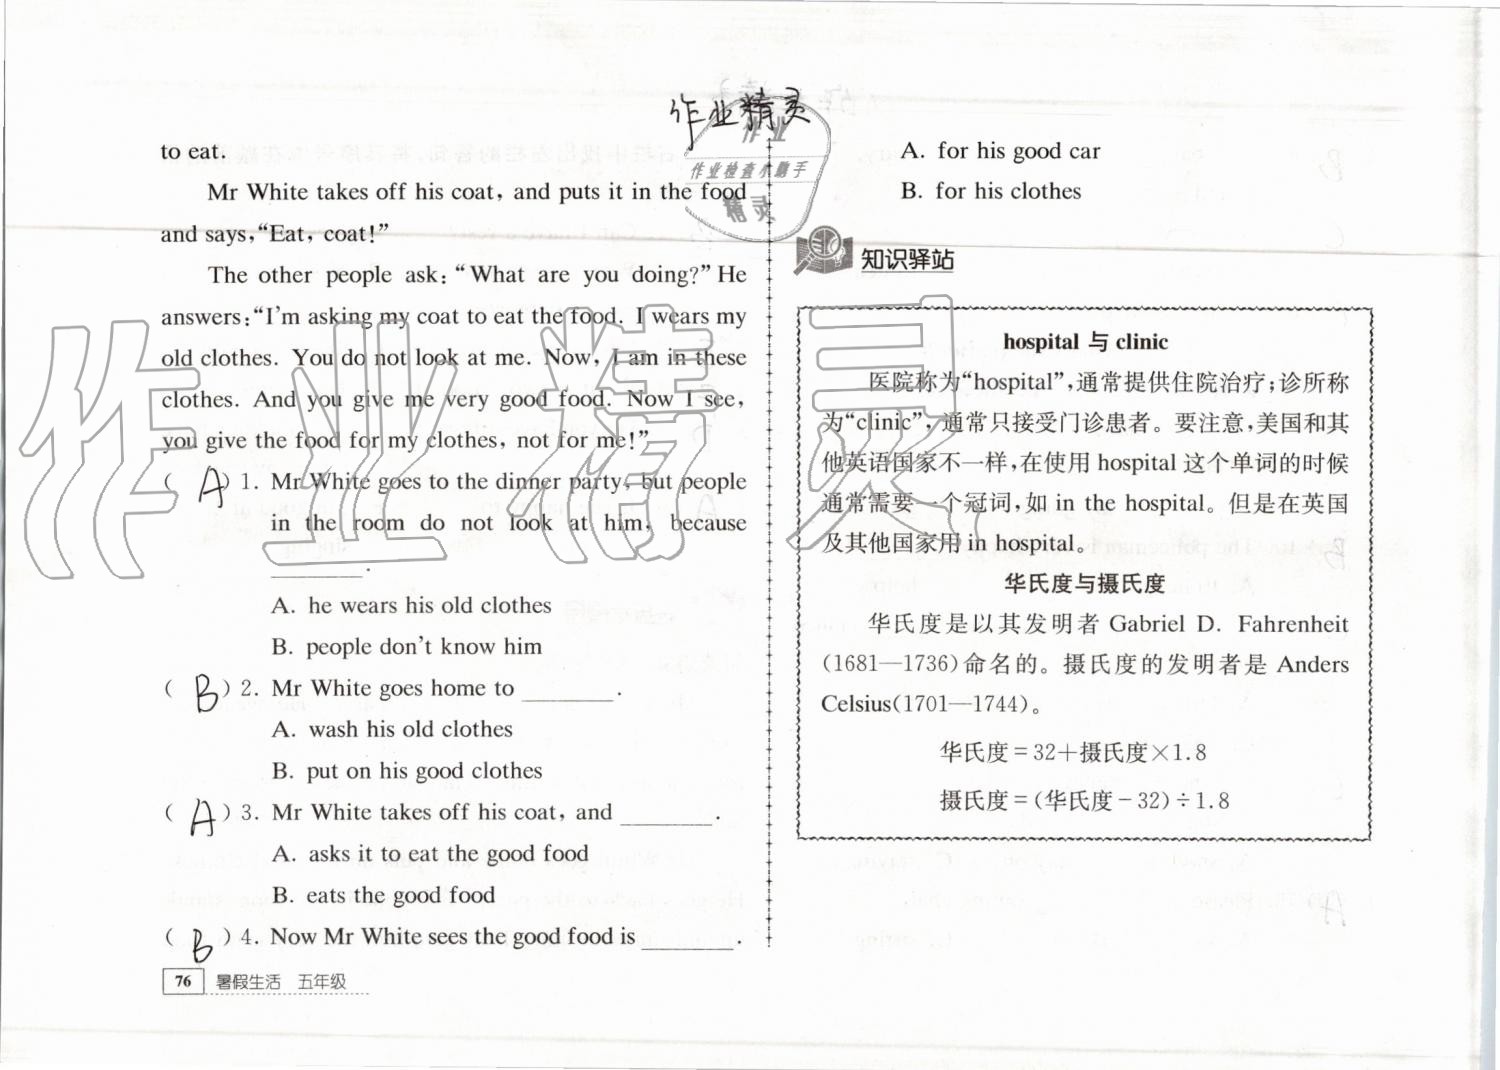 作业精灵
作业
作业检查小助手
精灵
to eat.
Mr White takes off his coat, and puts it in the food
and says,“Eat, coat!”
The other people ask:“What are you doing?” He
answers:“I'm asking my coat to eat the food. I wears my
old clothes. You do not look at me. Now, I am in these
clothes. And you give me very good food. Now I see,
you give the food for my clothes, not for me!”
( A ) 1. Mr White goes to the dinner party, but people
in the room do not look at him, because
________.
A. he wears his old clothes
B. people don't know him
( B ) 2. Mr White goes home to ________.
A. wash his old clothes
B. put on his good clothes
( A ) 3. Mr White takes off his coat, and ________.
A. asks it to eat the good food
B. eats the good food
( B ) 4. Now Mr White sees the good food is ________.
76 暑假生活 五年级
A. for his good car
B. for his clothes
知识驿站
hospital 与 clinic
医院称为“hospital”,通常提供住院治疗;诊所称
为“clinic”,通常只接受门诊患者。要注意,美国和其
他英语国家不一样,在使用 hospital 这个单词的时候
通常需要一个冠词,如 in the hospital。但是在英国
及其他国家用 in hospital。
华氏度与摄氏度
华氏度是以其发明者 Gabriel D. Fahrenheit
(1681—1736)命名的。摄氏度的发明者是 Anders
Celsius(1701—1744)。
华氏度=32+摄氏度×1.8
摄氏度=(华氏度-32)÷1.8
作业精灵